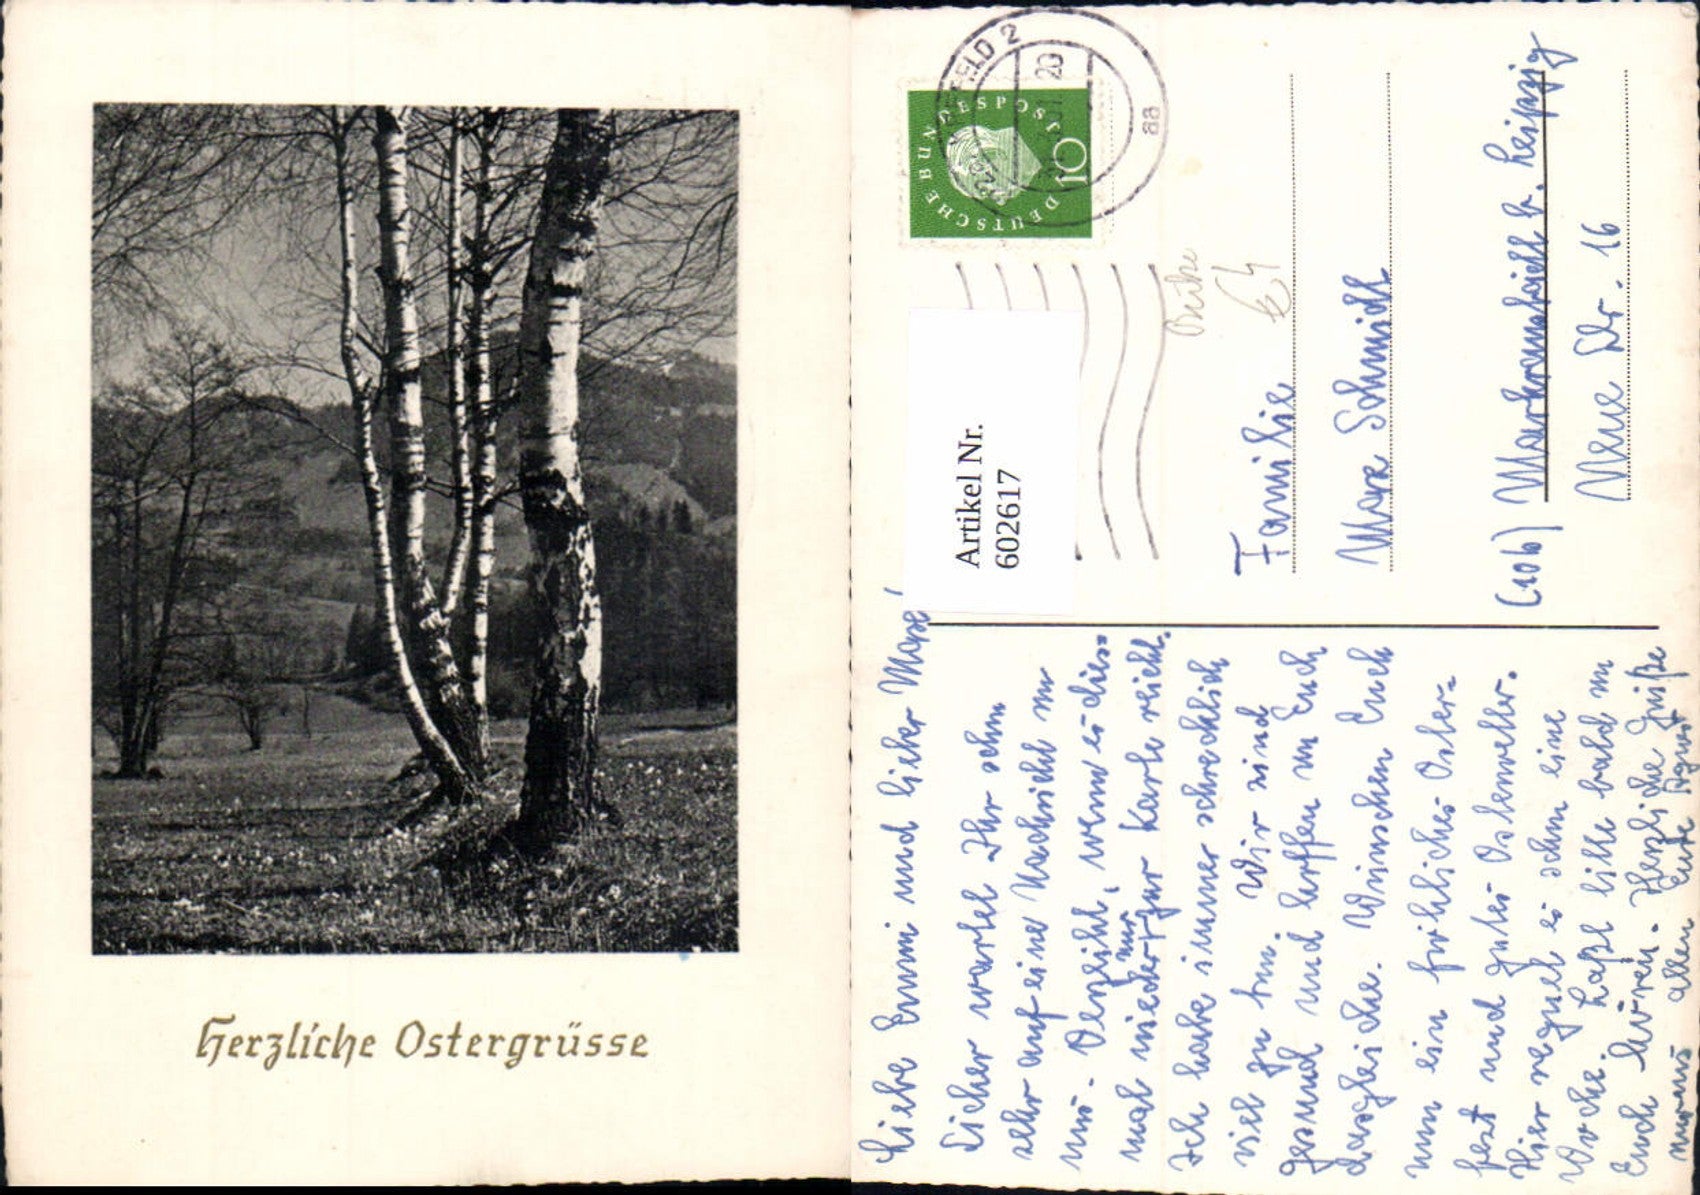 Herzliche Ostergrüsse
DEUTSCHE BUNDESPOST
10
FELD 2
20
aa
Artikel Nr.
602617
Familie
Max Schmidt
(10b) Markranstädt b. Leipzig
Neue Str. 16
Liebe Emmi und lieber Max!
Sicher wartet Ihr schon
sehr auf eine Nachricht von
uns. Verzeiht, wenn es dies=
mal wieder nur zur Karte reicht.
Ich habe immer schrecklich
viel zu tun. Wir sind
gesund und hoffen von Euch
dasgleiche. Wünschen Euch
nun ein fröhliches Oster=
fest und gutes Osterwetter.
Hier regnet es schon eine
Woche. Laßt bitte bald von
Euch hören. Herzliche Grüße
uns allen Eure